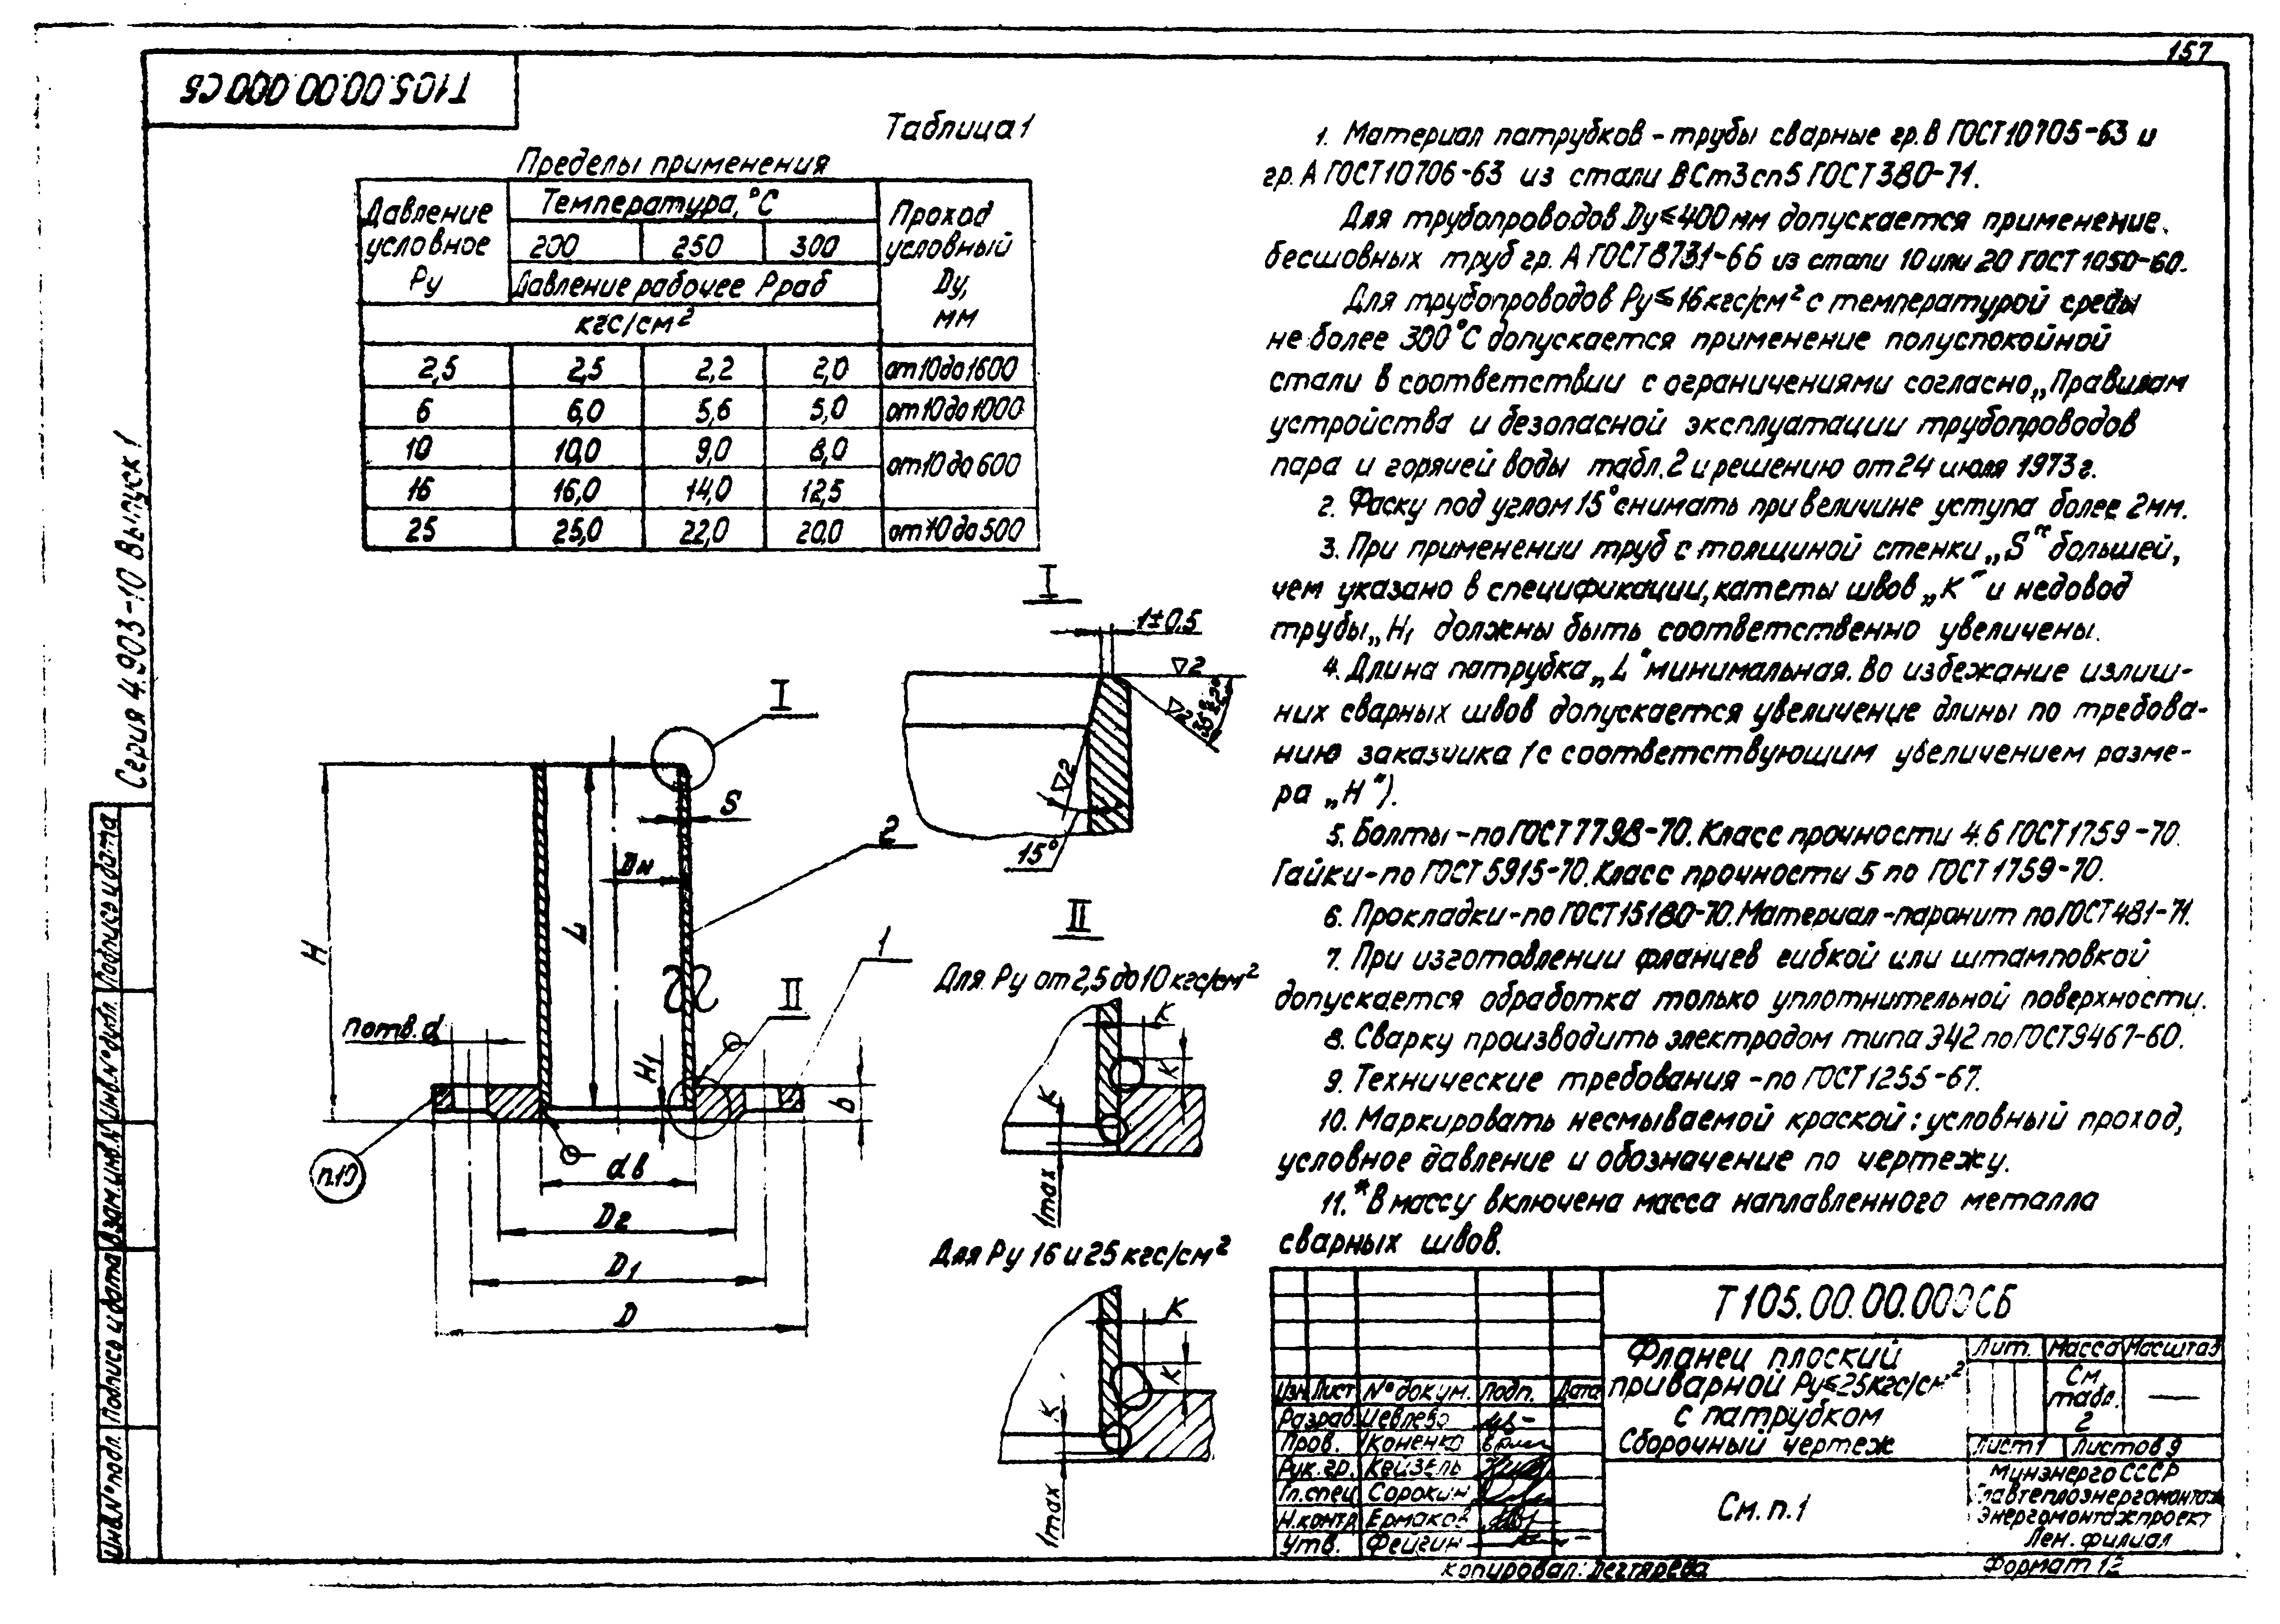 157
Т105.00.00.000СБ
Серия 4.903-10 Выпуск 1
Таблица 1
Пределы применения
Давление условное Ру
Температура, °С
Проход условный Ду, мм
200 250 300
Давление рабочее Рраб
кгс/см²
2,5 2,5 2,2 2,0 от 10 до 1600
6 6,0 5,6 5,0 от 10 до 1000
10 10,0 9,0 8,0 от 10 до 600
16 16,0 14,0 12,5
25 25,0 22,0 20,0 от 10 до 500
I
1±0,5
▽2
▽2
▽2
15°
I
H
S
2
Дн
L
1
II
n отв. d
H1
b
п.10
dв
D2
D1
D
II
Для Ру от 2,5 до 10 кгс/см²
К
К
К
1max
Для Ру 16 и 25 кгс/см²
К
К
К
1max
1. Материал патрубков - трубы сварные гр. В ГОСТ 10705-63 и
гр. А ГОСТ 10706-63 из стали ВСт3сп5 ГОСТ 380-71.
Для трубопроводов Ду≤400 мм допускается применение
бесшовных труб гр. А ГОСТ 8731-66 из стали 10 или 20 ГОСТ 1050-60.
Для трубопроводов Ру≤16 кгс/см² с температурой среды
не более 300°С допускается применение полуспокойной
стали в соответствии с ограничениями согласно „Правилам
устройства и безопасной эксплуатации трубопроводов
пара и горячей воды табл. 2 и решению от 24 июля 1973 г.
2. Фаску под углом 15° снимать при величине уступа более 2мм.
3. При применении труб с толщиной стенки „S“ большей,
чем указано в спецификации, катеты швов „К“ и недовод
трубы „Н1 должны быть соответственно увеличены.
4. Длина патрубка „L“ минимальная. Во избежание излиш-
них сварных швов допускается увеличение длины по требова-
нию заказчика (с соответствующим увеличением разме-
ра „Н“).
5. Болты - по ГОСТ 7798-70. Класс прочности 4.6 ГОСТ 1759-70.
Гайки - по ГОСТ 5915-70. Класс прочности 5 по ГОСТ 1759-70.
6. Прокладки - по ГОСТ 15180-70. Материал - паронит по ГОСТ 481-71.
7. При изготовлении фланцев гибкой или штамповкой
допускается обработка только уплотнительной поверхности.
8. Сварку производить электродом типа Э42 по ГОСТ 9467-60.
9. Технические требования - по ГОСТ 1255-67.
10. Маркировать несмываемой краской: условный проход,
условное давление и обозначение по чертежу.
11.* В массу включена масса наплавленного металла
сварных швов.
Т105.00.00.000СБ
Фланец плоский
приварной Ру≤25кгс/см²
с патрубком
Сборочный чертеж
Лит. Масса Масштаб
См. табл. 2 —
Лист 1 Листов 9
См. п. 1
Минэнерго СССР
Главтеплоэнергомонтаж
Энергомонтажпроект
Лен. филиал
Изм. Лист № докум. Подп. Дата
Разраб. Цевлева
Пров. Коненко
Рук. гр. Кейзель
Гл. спец Сорокин
Н. контр Ермаков
Утв. Фейгин
Копировал: Дегтярева
Формат 12
Подпись и дата
Инв. № дубл.
Взам. инв. №
Подпись и дата
Инв. № подл.